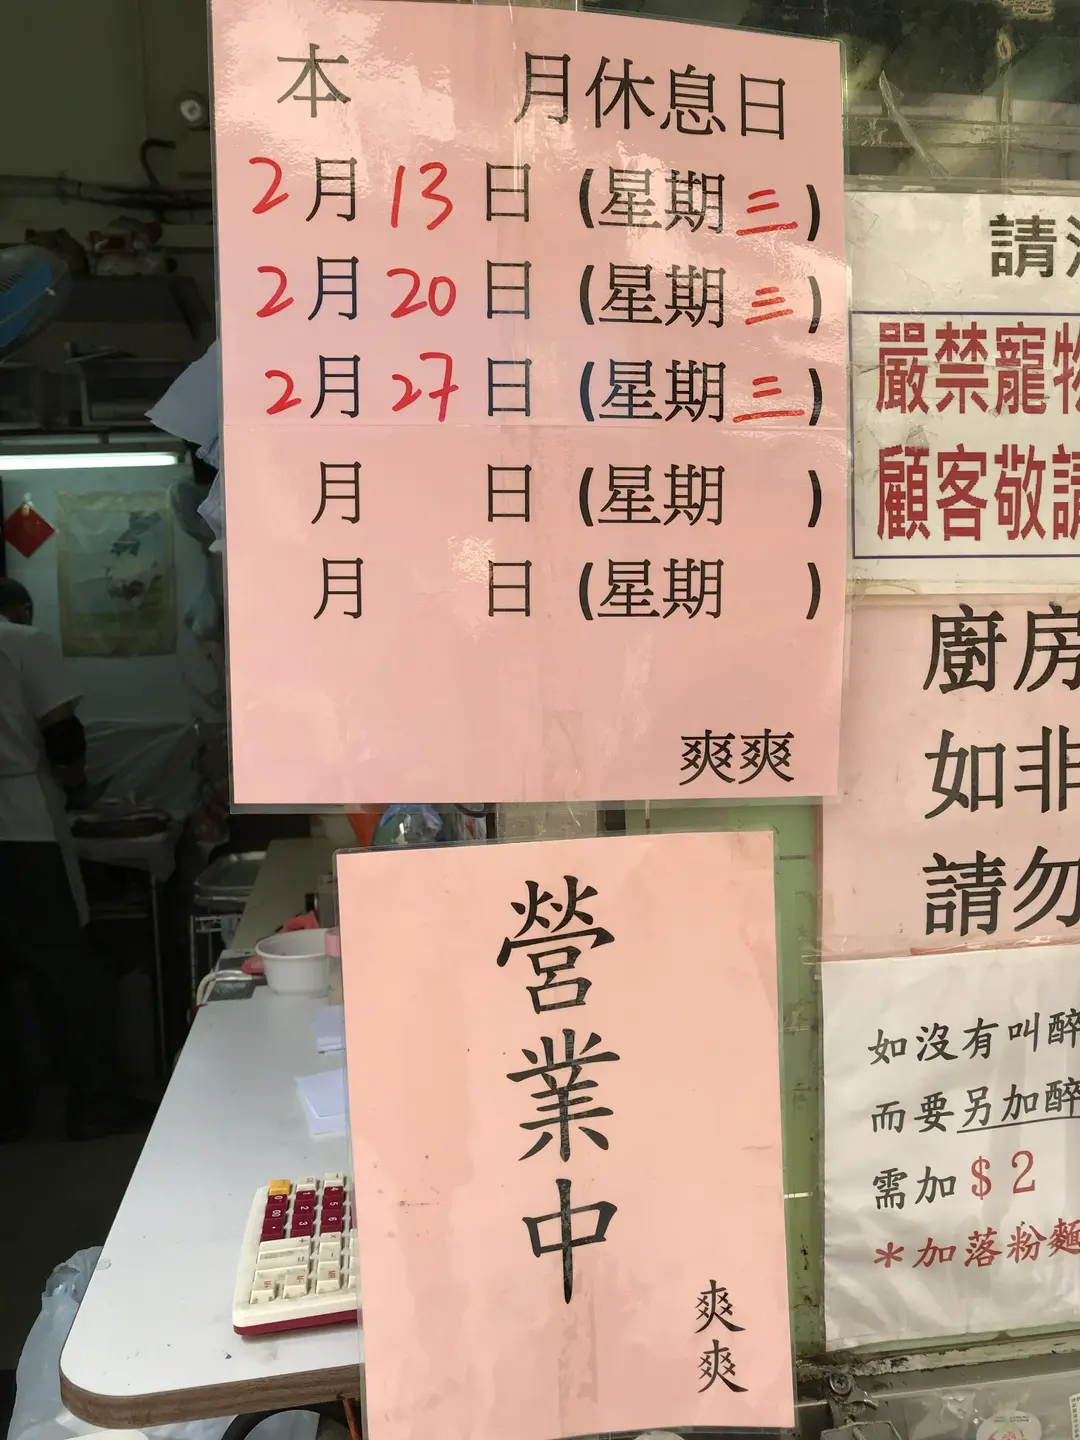 本 月休息日
2月13日(星期三)
2月20日(星期三)
2月27日(星期三)
月 日(星期 )
月 日(星期 )
爽爽
營業中
爽爽
請
嚴禁寵物
顧客敬請
廚房
如非
請勿
如沒有叫醉
而要另加醉
需加$2
*加落粉麵